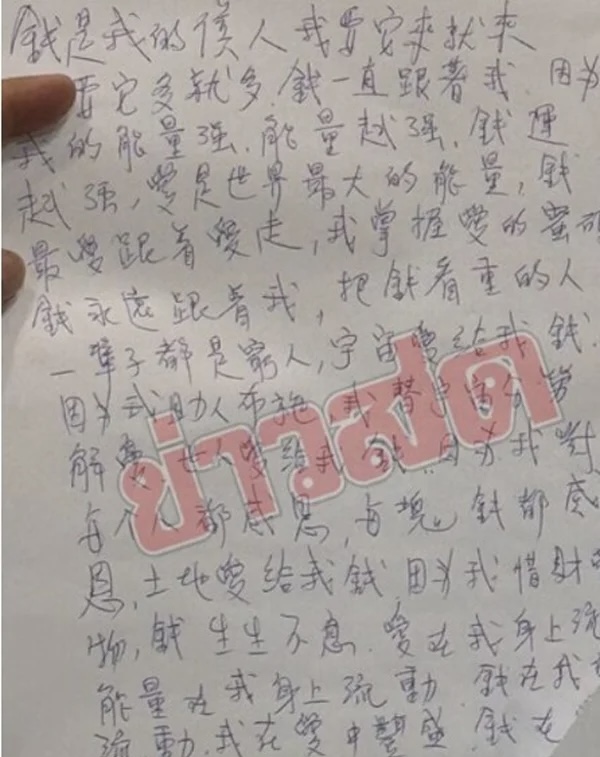 錢是我的僕人 我要它來就來
要它多就多.錢一直跟著我 因为
我的能量强.能量越强.錢運
越强,愛是世界最大的能量,錢
最愛跟着愛走,我掌握愛的
錢永遠跟着我,把錢看重的人
一輩子都是窮人,宇宙愛給我錢.
因为我助人布施,我替宇宙分勞
解憂.世人愛給我錢.因为我對
每个人都感恩,每塊錢都感
恩,土地愛給我錢.因为我惜財
物,錢生生不息.愛在我身上流
能量在我身上流動.錢在我
流動.我在愛中豐盛.錢在
ข่าวสด